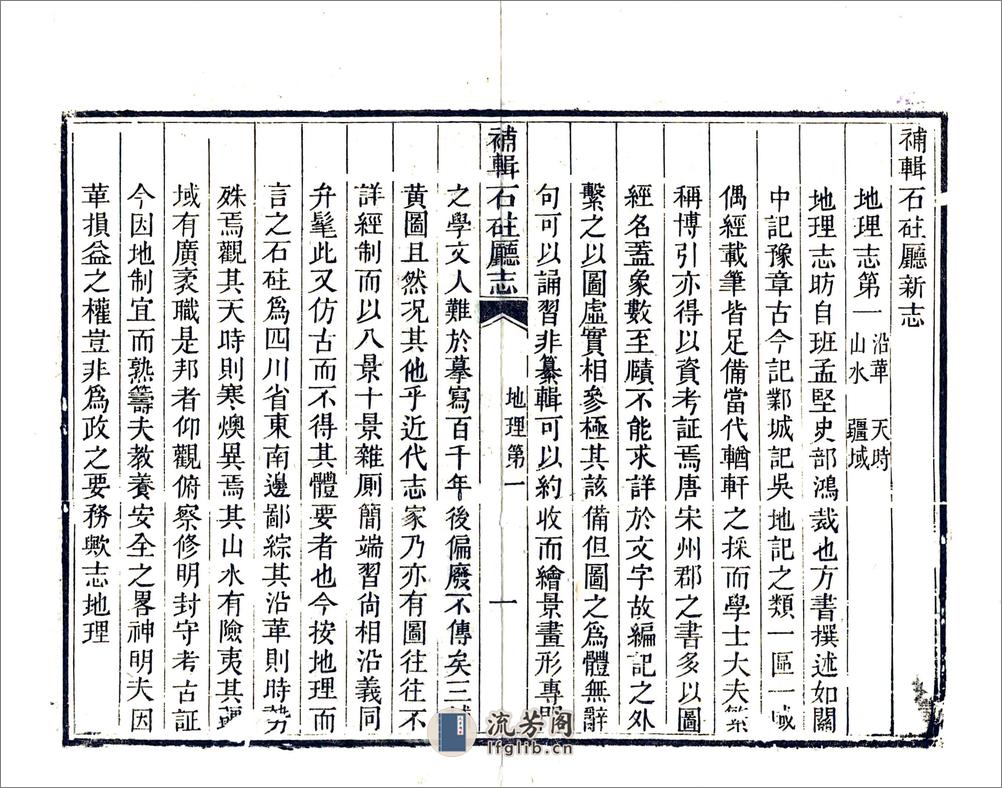 補輯石砫廳新志
地理志第一 沿革 天時 山水 疆域
地理志昉自班孟堅史部鴻裁也方書撰述如關
中記豫章古今記鄴城記吳地記之類一區一域
偶經載筆皆足備當代輶軒之採而學士大夫繁
稱博引亦得以資考証焉唐宋州郡之書多以圖
經名蓋象數至賾不能求詳於文字故編記之外
繫之以圖虛實相參極其該備但圖之為體無辭
句可以誦習非纂輯可以約收而繪景畫形專門
補輯石砫廳志 地理第一 一
之學文人難於摹寫百千年後偏廢不傳矣三輔
黃圖且然况其他乎近代志家乃亦有圖徃徃不
詳經制而以八景十景雜厠簡端習尙相沿義同
弁髦此又仿古而不得其體要者也今按地理而
言之石砫爲四川省東南邊鄙綜其沿革則時勢
殊焉觀其天時則寒燠異焉其山水有險夷其疆
域有廣袤職是邦者仰觀俯察修明封守考古証
今因地制宜而熟籌夫教養安全之畧神明夫因
革損益之權豈非爲政之要務歟志地理
流芳阁
lfglib.cn